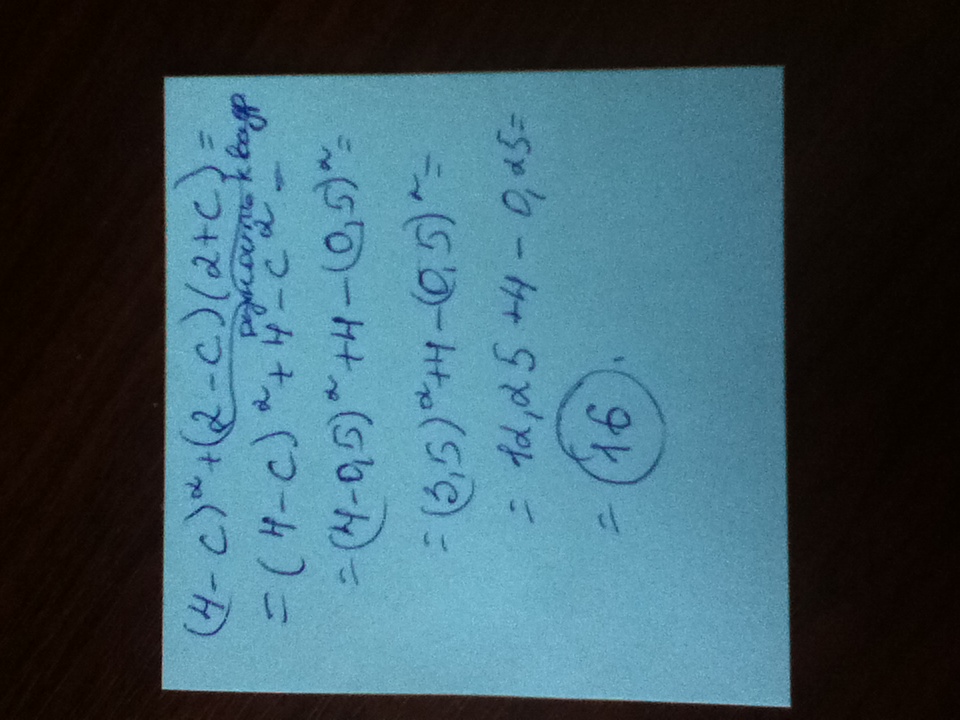 (4-c)²+(2-c)(2+c)=
разность квадр
=(4-c)²+4-c²=
=(4-0,5)²+4-(0,5)²=
=(3,5)²+4-(0,5)²=
=12,25+4-0,25=
=16.